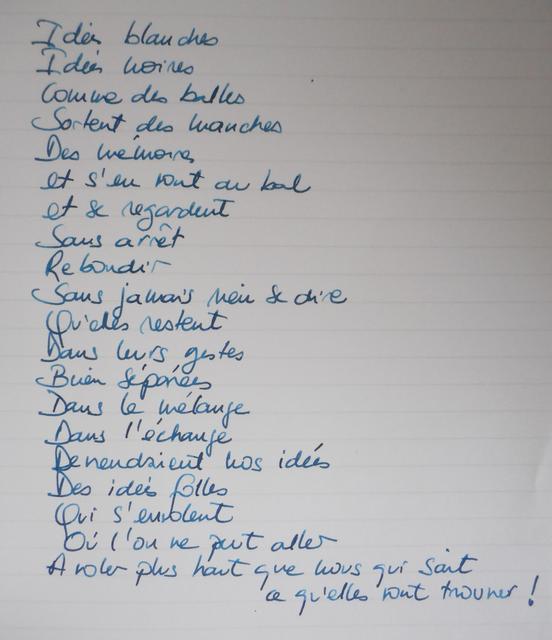 Idées blanches
Idées noires
Comme des balles
Sortent des manches
Des mémoires
et s'en vont au bal
et se regardent
Sans arrêt
Rebondir
Sans jamais rien se dire
Qu'elles restent
Dans leurs gestes
Bien séparées
Dans le mélange
Dans l'échange
Deviendraient nos idées
Des idées folles
Qui s'envolent
Où l'on ne peut aller
A voler plus haut que nous qui sait
ce qu'elles vont trouver !